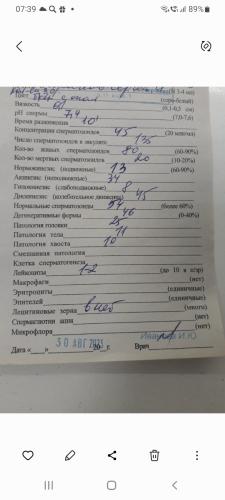 07:39
89%
(N 3-4 мл)
Цвет (серо-белый)
Вязкость (0,1-0,5 см)
pH спермы 7,4 (7,0-7,6)
Время разжижения 10'
Концентрация сперматозоидов 45 (20 млн/мл)
Кол-во сперматозоидов в эякуляте 135
Кол-во живых сперматозоидов 80 (60-90%)
Кол-во мертвых сперматозоидов 20 (10-20%)
Нормокинезис (подвижные) 13 (60-90%)
Акинезис (неподвижные) 34
Гипокинезис (слабоподвижные) 8
Дискинезис (колебательное движение) 45
Нормальные сперматозоиды 54 (более 60%)
Дегенеративные формы 46 (0-40%)
Патология головки 25
Патология тела 11
Патология хвоста 10
Смешанная патология
Клетки сперматогенеза
Лейкоциты 1-2 (до 10 в п/зр)
Макрофаги (нет)
Эритроциты (единичные)
Эпителий (единичные)
Лецитиновые зерна (много)
Спермаглютинация (нет)
Микрофлора (нет)
Дата « » 30 АВГ 2023 20 г. Врач